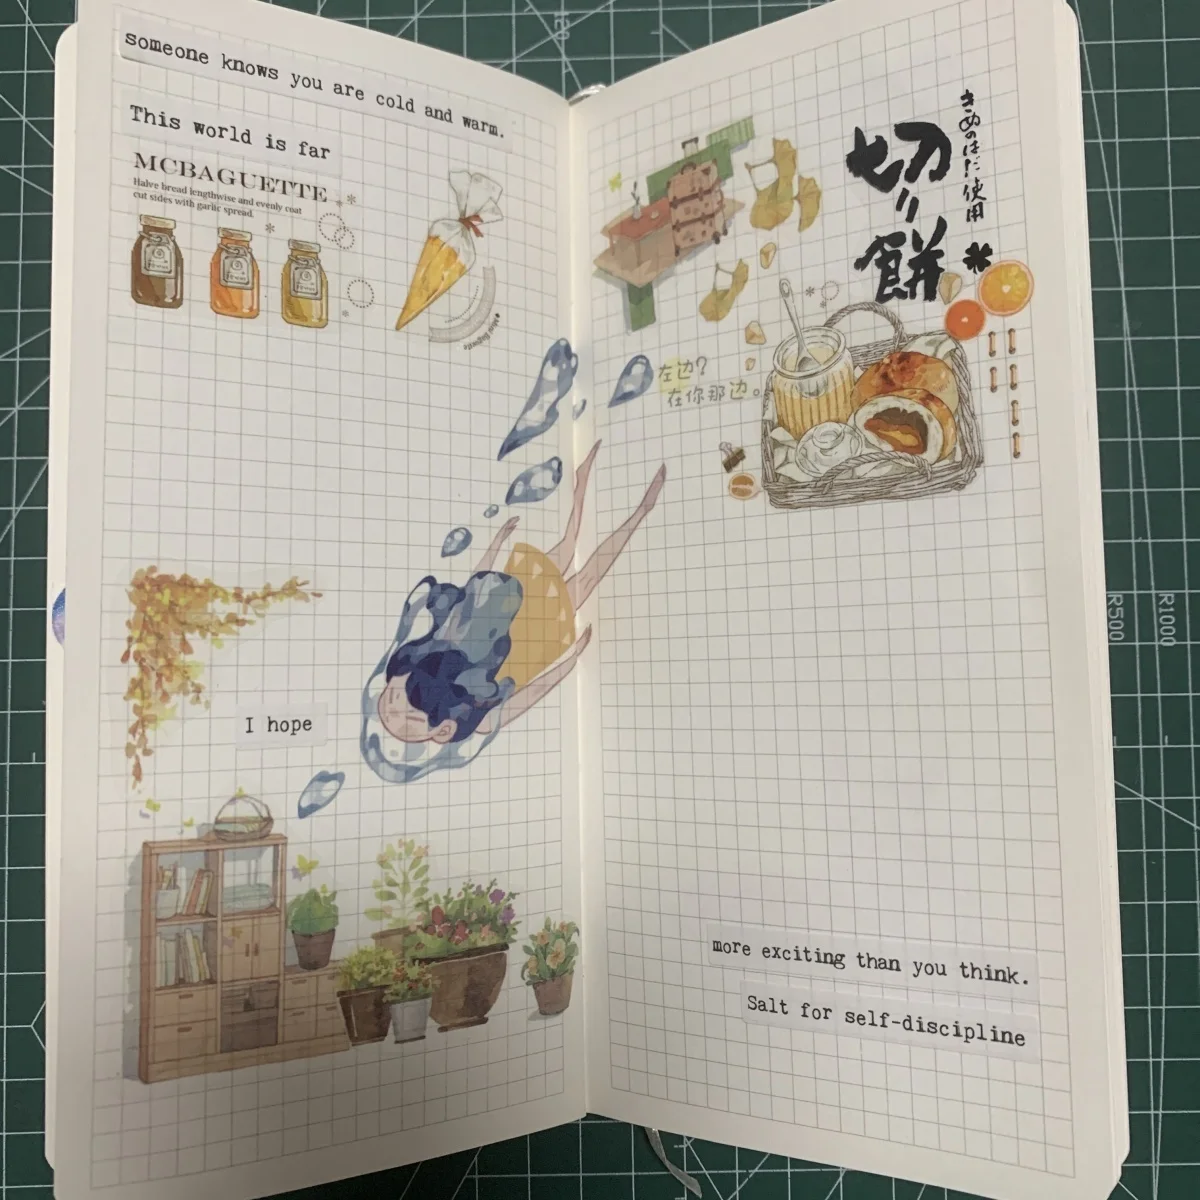 someone knows you are cold and warm.
This world is far
MCBAGUETTE
Halve bread lengthwise and evenly coat
cut sides with garlic spread.
I hope
きぬのはだ使用
切り餅
左边？
在你那边。
more exciting than you think.
Salt for self-discipline
R500
R1000